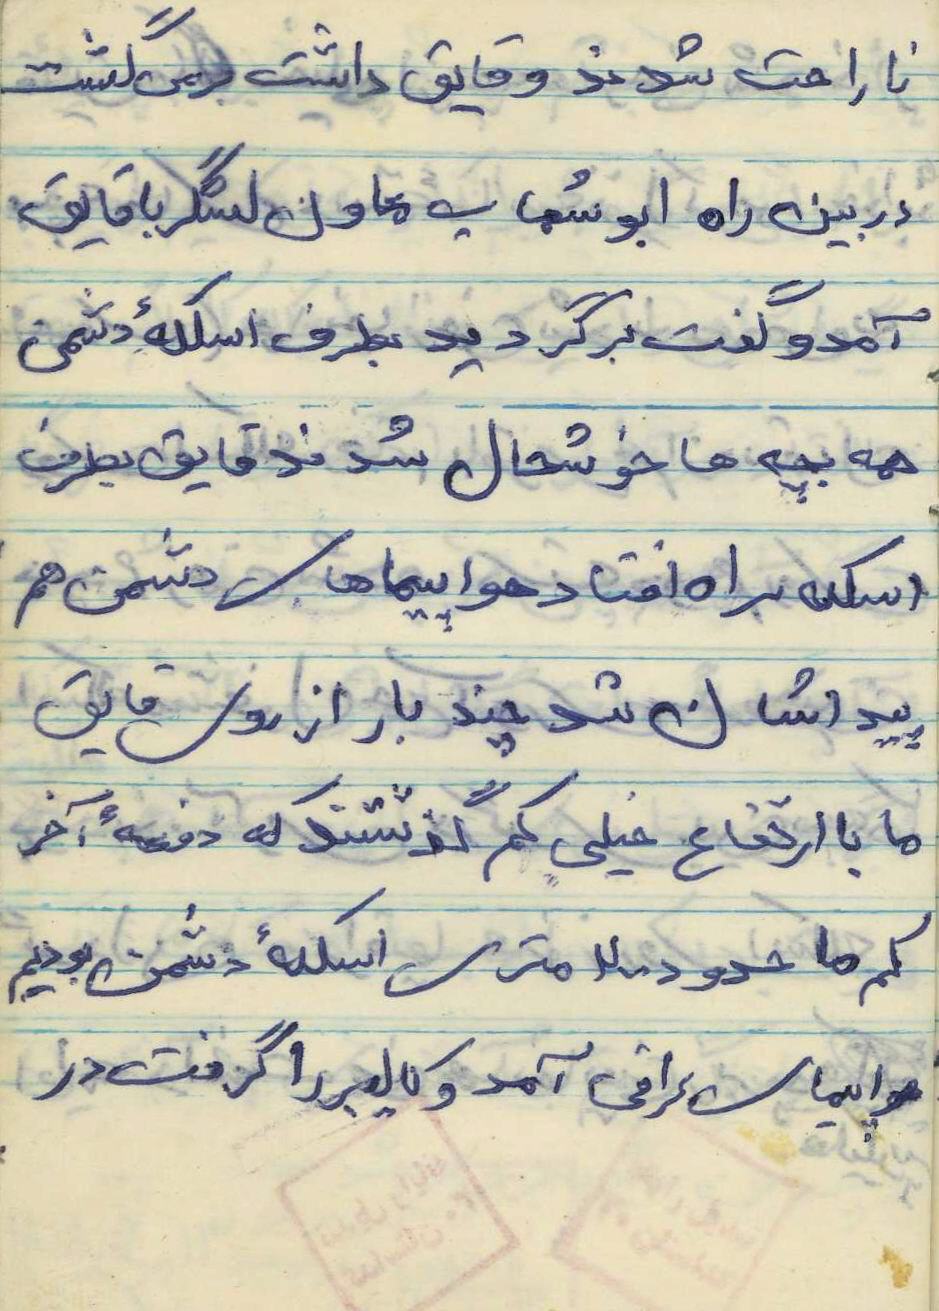 ناراحت شدند و قایق داشت برمی گشت
در بین راه ابوشهاب معاون لشگر با قایق
آمد و گفت برگردید بطرف اسکلهٔ دشمن
همه بچه ها خوشحال شدند قایق بطرف
اسکله براه افتاد هواپیماهای دشمن هم
پیداشان شد چند بار از روی قایق
ما با ارتفاع خیلی کم گذشتند که دفعهٔ آخر
کم ما حدود متری اسکلهٔ دشمن بودیم
هواپیمای عراقی آمد و کالیبر را گرفت در